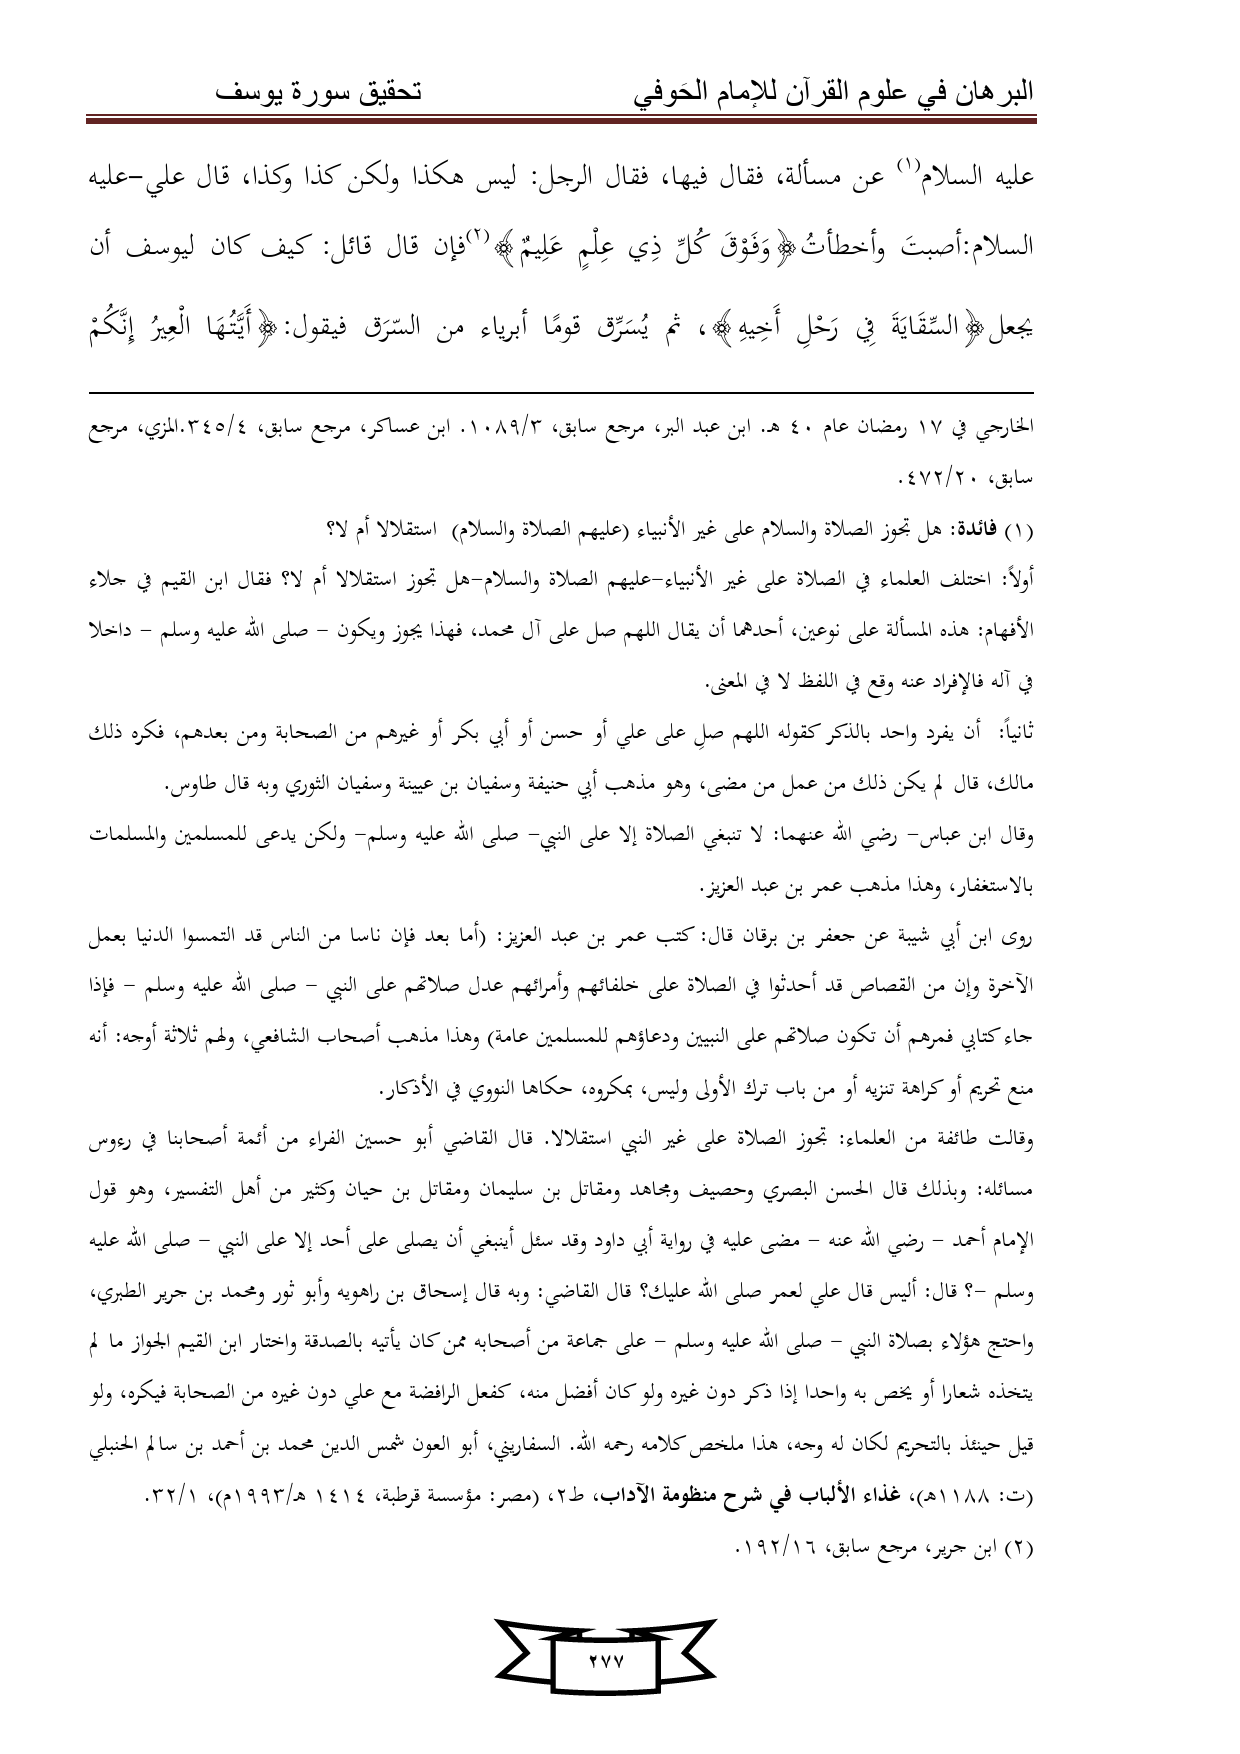 البرهان في علوم القرآن للإمام الحَوفي تحقيق سورة يوسف
عليه السلام(١) عن مسألة، فقال فيها، فقال الرجل: ليس هكذا ولكن كذا وكذا، قال علي–عليه
السلام:أصبتَ وأخطأتُ﴿وَفَوْقَ كُلِّ ذِي عِلْمٍ عَلِيمٌ﴾(٢)فإن قال قائل: كيف كان ليوسف أن
يجعل﴿السِّقَايَةَ فِي رَحْلِ أَخِيهِ﴾، ثم يُسَرِّق قومًا أبرياء من السّرَق فيقول:﴿أَيَّتُهَا الْعِيرُ إِنَّكُمْ
الخارجي في ١٧ رمضان عام ٤٠ هـ. ابن عبد البر، مرجع سابق، ١٠٨٩/٣. ابن عساكر، مرجع سابق، ٣٤٥/٤.المزي، مرجع
سابق، ٤٧٢/٢٠.
(١) فائدة: هل تجوز الصلاة والسلام على غير الأنبياء (عليهم الصلاة والسلام) استقلالا أم لا؟
أولاً: اختلف العلماء في الصلاة على غير الأنبياء–عليهم الصلاة والسلام–هل تجوز استقلالا أم لا؟ فقال ابن القيم في جلاء
الأفهام: هذه المسألة على نوعين، أحدهما أن يقال اللهم صل على آل محمد، فهذا يجوز ويكون – صلى الله عليه وسلم – داخلا
في آله فالإفراد عنه وقع في اللفظ لا في المعنى.
ثانياً: أن يفرد واحد بالذكر كقوله اللهم صلِ على علي أو حسن أو أبي بكر أو غيرهم من الصحابة ومن بعدهم، فكره ذلك
مالك، قال لم يكن ذلك من عمل من مضى، وهو مذهب أبي حنيفة وسفيان بن عيينة وسفيان الثوري وبه قال طاوس.
وقال ابن عباس– رضي الله عنهما: لا تنبغي الصلاة إلا على النبي– صلى الله عليه وسلم– ولكن يدعى للمسلمين والمسلمات
بالاستغفار، وهذا مذهب عمر بن عبد العزيز.
روى ابن أبي شيبة عن جعفر بن برقان قال: كتب عمر بن عبد العزيز: (أما بعد فإن ناسا من الناس قد التمسوا الدنيا بعمل
الآخرة وإن من القصاص قد أحدثوا في الصلاة على خلفائهم وأمرائهم عدل صلاتهم على النبي – صلى الله عليه وسلم – فإذا
جاء كتابي فمرهم أن تكون صلاتهم على النبيين ودعاؤهم للمسلمين عامة) وهذا مذهب أصحاب الشافعي، ولهم ثلاثة أوجه: أنه
منع تحريم أو كراهة تنزيه أو من باب ترك الأولى وليس، بمكروه، حكاها النووي في الأذكار.
وقالت طائفة من العلماء: تجوز الصلاة على غير النبي استقلالا. قال القاضي أبو حسين الفراء من أئمة أصحابنا في رءوس
مسائله: وبذلك قال الحسن البصري وحصيف ومجاهد ومقاتل بن سليمان ومقاتل بن حيان وكثير من أهل التفسير، وهو قول
الإمام أحمد – رضي الله عنه – مضى عليه في رواية أبي داود وقد سئل أينبغي أن يصلى على أحد إلا على النبي – صلى الله عليه
وسلم –؟ قال: أليس قال علي لعمر صلى الله عليك؟ قال القاضي: وبه قال إسحاق بن راهويه وأبو ثور ومحمد بن جرير الطبري،
واحتج هؤلاء بصلاة النبي – صلى الله عليه وسلم – على جماعة من أصحابه ممن كان يأتيه بالصدقة واختار ابن القيم الجواز ما لم
يتخذه شعارا أو يخص به واحدا إذا ذكر دون غيره ولو كان أفضل منه، كفعل الرافضة مع علي دون غيره من الصحابة فيكره، ولو
قيل حينئذ بالتحريم لكان له وجه، هذا ملخص كلامه رحمه الله. السفاريني، أبو العون شمس الدين محمد بن أحمد بن سالم الحنبلي
(ت: ١١٨٨هـ)، غذاء الألباب في شرح منظومة الآداب، ط٢، (مصر: مؤسسة قرطبة، ١٤١٤ هـ/١٩٩٣م)، ٣٢/١.
(٢) ابن جرير، مرجع سابق، ١٩٢/١٦.
٢٧٧